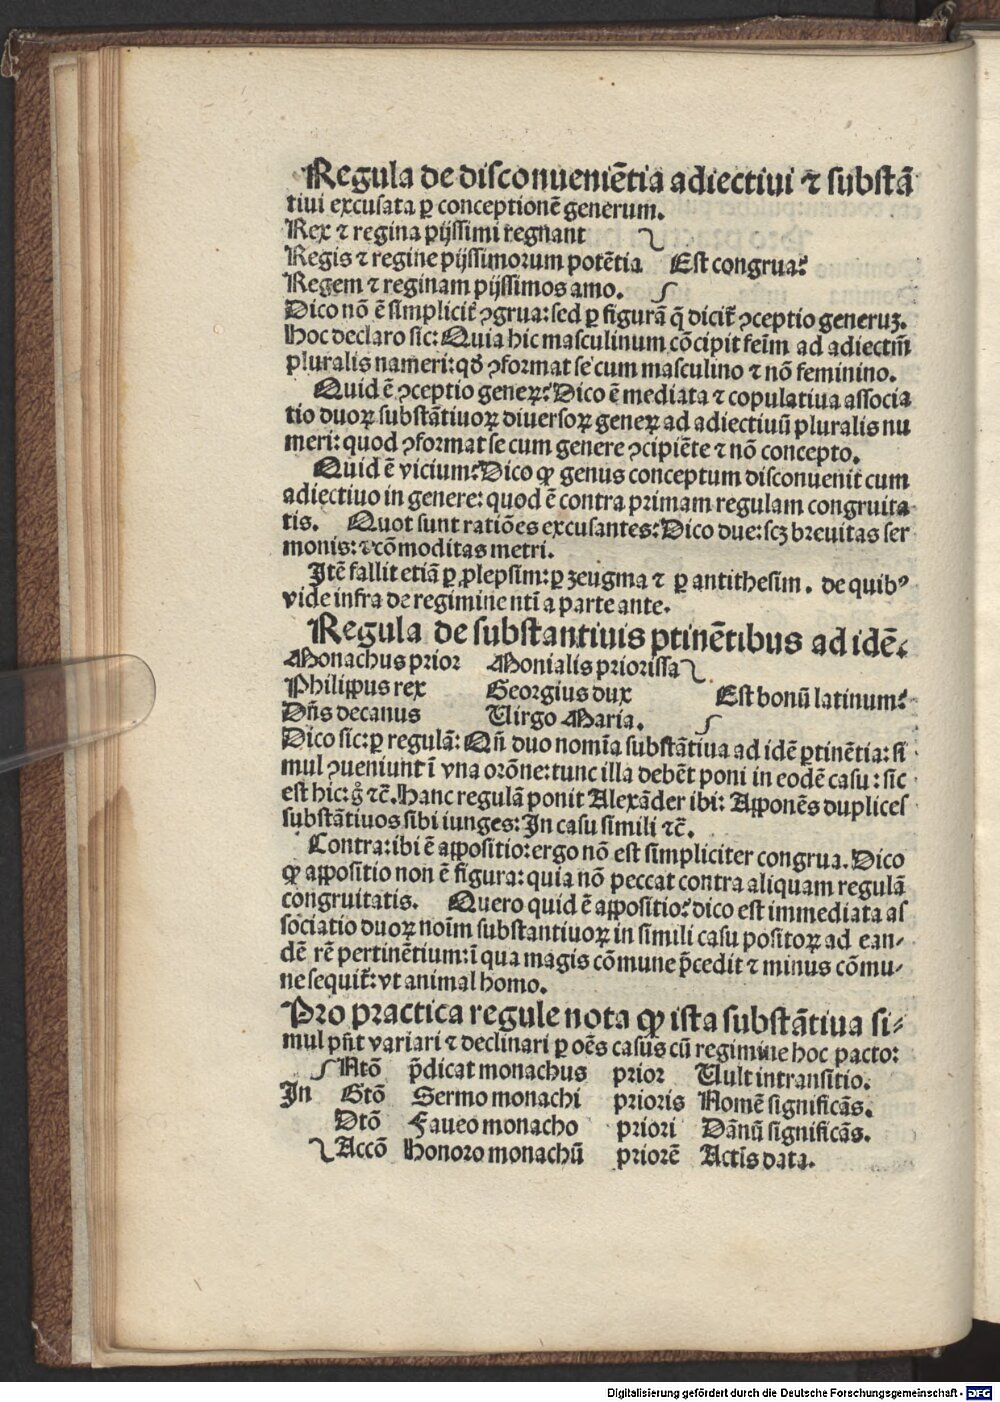 Regula de disconueniẽtia adiectiui ⁊ substã
tiui excusata ꝑ conceptionẽ generum.
Rex ⁊ regina pijssimi regnant
Regis ⁊ regine pijssimorum potẽtia Est congrua?
Regem ⁊ reginam pijssimos amo.
Dico nõ ẽ simplicit̃ ꝯgrua: sed ꝑ figurã q̃ dicit̃ ꝯceptio generuꝫ.
Hoc declaro sic: Quia hic masculinum cõcipit feĩm ad adiectiũ
pluralis nameri: qđ ꝯformat se cum masculino ⁊ nõ feminino.
Quid ẽ ꝯceptio geneꝝ? Dico ẽ mediata ⁊ copulatiua associa
tio duoꝝ substãtiuoꝝ diuersoꝝ geneꝝ ad adiectiuũ pluralis nu
meri: quod ꝯformat se cum genere ꝯcipiẽte ⁊ nõ concepto.
Quid ẽ vicium? Dico ꝙ genus conceptum disconuenit cum
adiectiuo in genere: quod ẽ contra primam regulam congruita
tis. Quot sunt ratiões excusantes: Dico due: scꝫ breuitas ser
monis: ⁊ cõmoditas metri.
Jtẽ fallit etiã ꝑ ꝓlepsim: ꝑ zeugma ⁊ ꝑ antithesim. de quibꝰ
vide infra de regimine nti a parte ante.
Regula de substantiuis ptinẽtibus ad idẽ.
Monachus prior Monialis priorissa
Philippus rex Georgius dux Est bonũ latinum?
Dñs decanus Uirgo Maria.
Dico sic: ꝑ regulã: Qñ duo nomĩa substãtiua ad idẽ ꝑtinẽtia: si
mul ꝯueniunt ĩ vna orõne: tunc illa debẽt poni in eodẽ casu: sic
est hic: g̊ ⁊c̃. Hanc regulã ponit Alexãder ibi: Apponẽs duplices
substãtiuos sibi iunges: Jn casu simili ⁊c̃.
Contra: ibi ẽ appositio: ergo nõ est simpliciter congrua. Dico
ꝙ appositio non ẽ figura: quia nõ peccat contra aliquam regulã
congruitatis. Quero quid ẽ appositio? dico est immediata as
sociatio duoꝝ noĩm substantiuoꝝ in simili casu positoꝝ ad ean⸗
dẽ rẽ pertinẽtium: ĩ qua magis cõmune p̃cedit ⁊ minus cõmu⸗
ne sequit̃: vt animal homo.
Pro practica regule nota ꝙ ista substãtiua si⸗
mul pñt variari ⁊ declinari ꝑ oẽs casus cũ regimine hoc pacto:
Ntõ p̃dicat monachus prior Uult intransitio.
Jn Gtõ Sermo monachi prioris Nomẽ significãs.
Dtõ Faueo monacho priori Dãnũ significãs.
Accõ Honoro monachũ priorẽ Actĩs data.
Digitalisierung gefördert durch die Deutsche Forschungsgemeinschaft - DFG